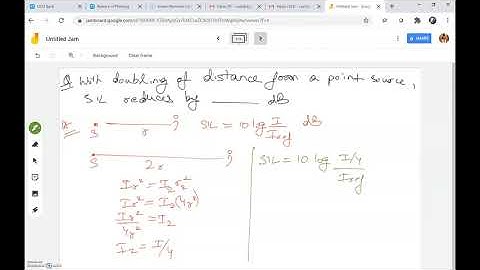 jamboard.google.com
Untitled Jam
Background
Clear frame
Q With doubling of distance from a point source,
SIL reduces by ______ dB
A=
S r SIL = 10 log I/Iref dB
S 2r
Ir² = I₂r₂²
Ir² = I₂(4r²)
Ir²/4r² = I₂
I₂ = I/4
SIL = 10 log I/4 / Iref